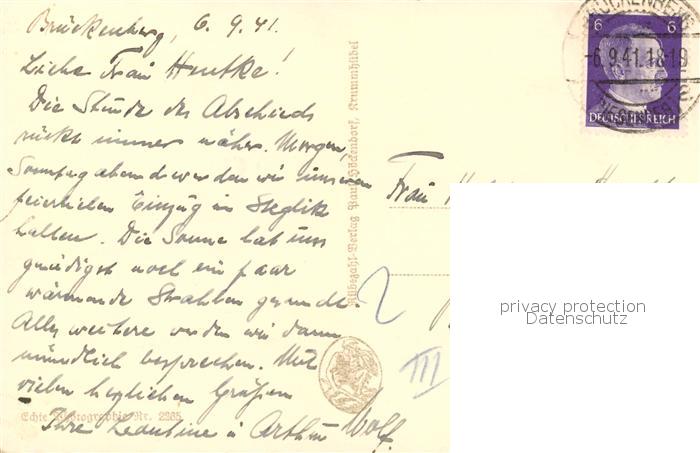 Brückenberg, 6.9.41.
Liebe Frau Hentke!
Die Stunde des Abschieds
rückt immer näher. Morgen,
Sonntag abend werden wir unseren
feierlichen Einzug in Steglitz
halten. Die Sonne hat uns
gnädigst noch ein paar
wärmende Strahlen gesandt.
Alles weitere werden wir dann
mündlich besprechen. Mit
vielen herzlichen Grüßen
Ihre Leontine u Arthur Wolf.
Echte Photographie Nr. 2365
Rübezahl-Verlag Paul Höckendorf, Krummhübel
BRÜCKENBERG
-6.9.41.18-19
6 6
DEUTSCHES REICH
Frau
2
III
privacy protection
Datenschutz